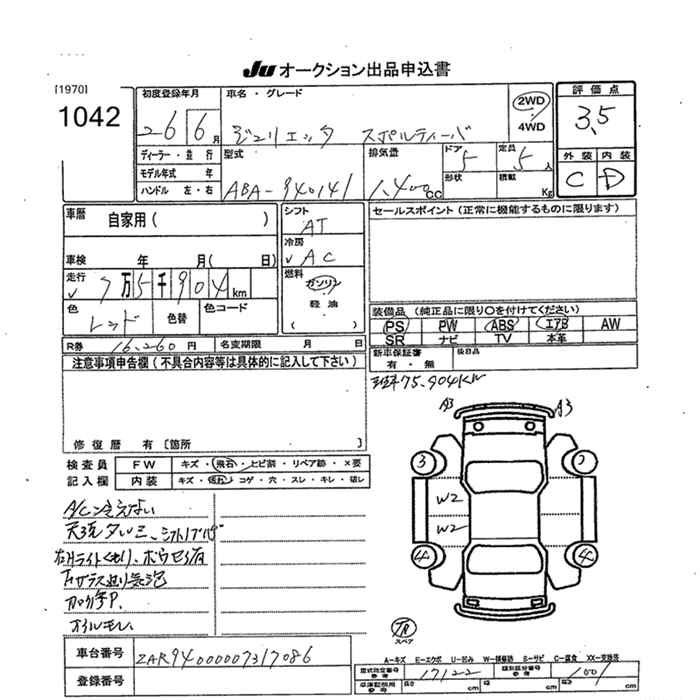 JU オークション出品申込書
[1970]
1042
初度登録年月
車名・グレード
2WD
4WD
評価点
26 6月
ジュリエッタ スポルティーバ
3,5
ディーラー・並行
型式
排気量
ドア
定員
外装 内装
モデル年式 年
5
5人
ハンドル 左・右
ABA-940141
1,400cc
形状
積載
Kg
C D
車歴 自家用( )
シフト AT
セールスポイント(正常に機能するものに限ります)
車検 年 月( 日)
冷房 AC
走行 7万5千904km
燃料 ガソリン
軽油
( )
色 レッド
色替
色コード
装備品(純正品に限り○を付けてください)
PS PW ABS エアB AW
SR ナビ TV 本革
R券 16,260円
名変期限 月 日
新車保証書 有・無
後日品
注意事項申告欄(不具合内容等は具体的に記入して下さい)
75,904km
修復歴 有[箇所 ]
A3 A3
検査員
記入欄
FW キズ・飛石・トビ割・リペア跡・×要
内装 キズ・汚れ・コゲ・穴・スレ・キレ・破レ
3
W2
W2
4 4
天張タルミ、シフトノブ
右ライトくもり
気泡
オイルモレ.
スペア
車台番号 ZAR94000007317086
登録番号
A-キズ E-エクボ U-凹み W-補修跡 S-サビ C-腐食 XX-交換済
型式指定番号 参考 17122
類別区分番号 参考 1001
長さ cm
幅 cm
高さ cm